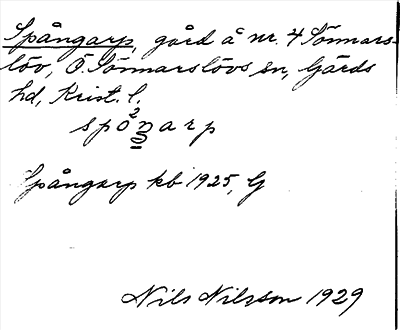 Spångarp, gård å nr. 4 Sönnars-
löv, Ö. Sönnarslövs sn, Gärds
hd, Krist. l.
spo²ŋarp
Spångarp kb 1925, G
Nils Nilsson 1929